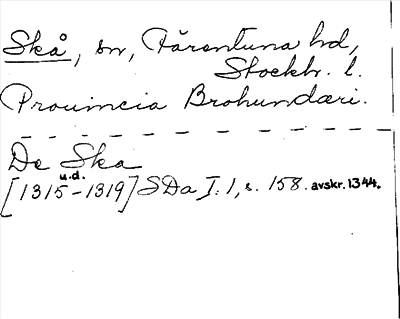 Skå, sn, Färentuna hd,
Stockh. l.
Prouincia Brohundæri.
De Ska
u.d.
[1315-1319] SDa I:1, s. 158. avskr. 1344.